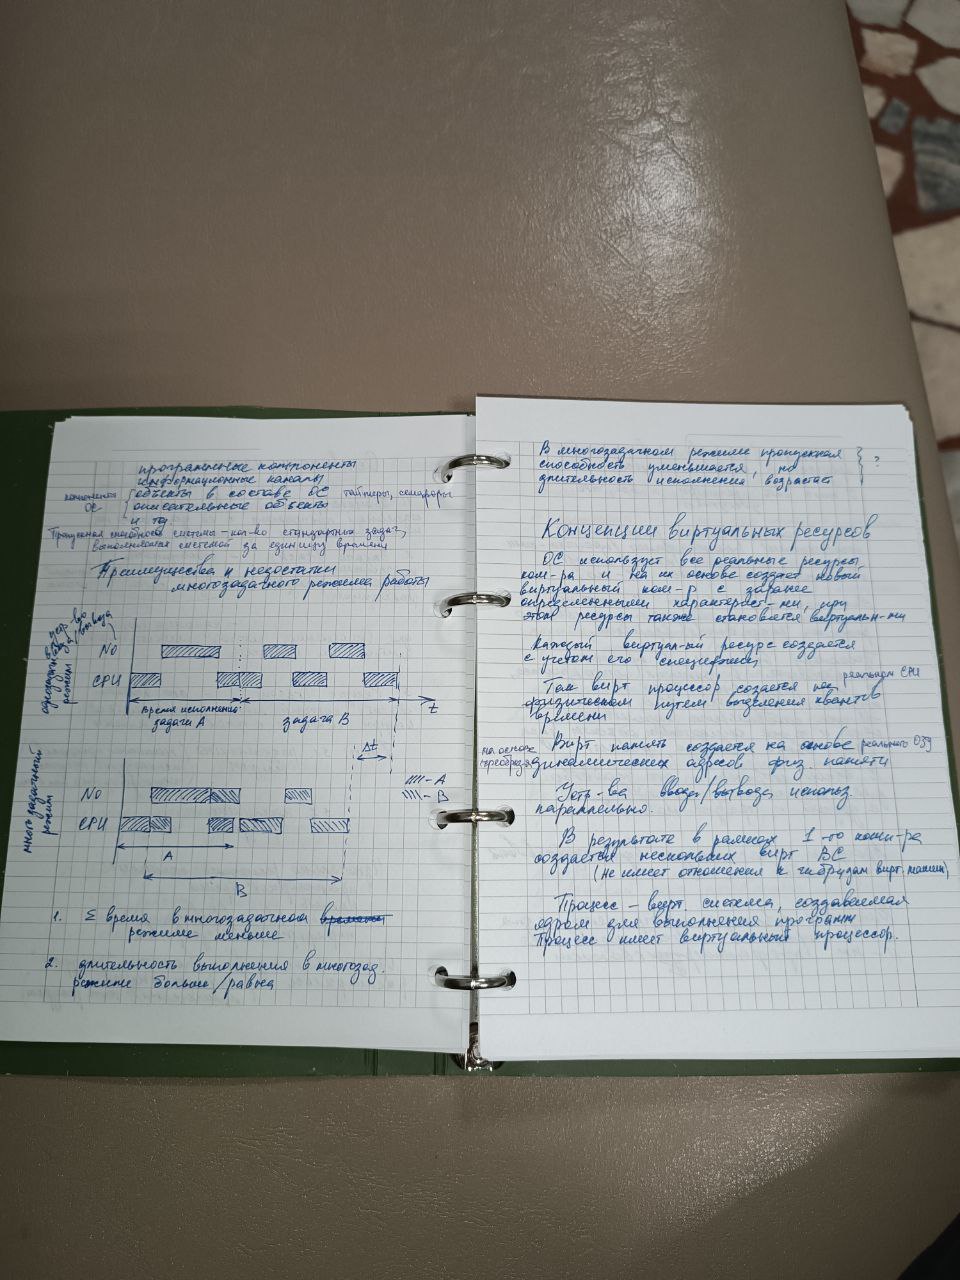 программные компоненты
информационные каналы
компоненты ОС
объекты в составе ОС таймеры, семафоры
описательные объекты
и тд.
Пропускная способность системы – кол-во стандартных задач,
выполняемая системой за единицу времени
Преимущества и недостатки
многозадачного режима работы
однозадачный режим
устр-во ввода/вывода
No
CPU
Время исполнения
задачи A
задача B
t
Δt
многозадачный режим
No
CPU
- A
- B
A
B
1. Σ время в многозадачном времени
режиме меньше
2. длительность выполнения в многозад.
режиме больше/равна
В многозадачном режиме пропускная
способность уменьшается, но
длительность исполнения возрастает
?
Концепции виртуальных ресурсов
ОС использует все реальные ресурсы
ком-ра и на их основе создает новый
виртуальный ком-р с заранее
определенными характерист-ми, при
этом ресурсы также становятся виртуальн-ми
Каждый виртуал-ый ресурс создается
с учетом его специфики
Так вирт процессор создается на реальном CPU
физическом путем выделения квантов
времени
Вирт память создается на основе реального ОЗУ
на основе преобразов.
динамических адресов физ памяти
Устр-ва ввода/вывода использ.
параллельно.
В результате в рамках 1-го комп-ра
создается несколько вирт ВС
(не имеет отношения к гибридам вирт. машин)
Процесс – вирт. система, создаваемая
ядром для выполнения программ
Процесс имеет виртуальный процессор.